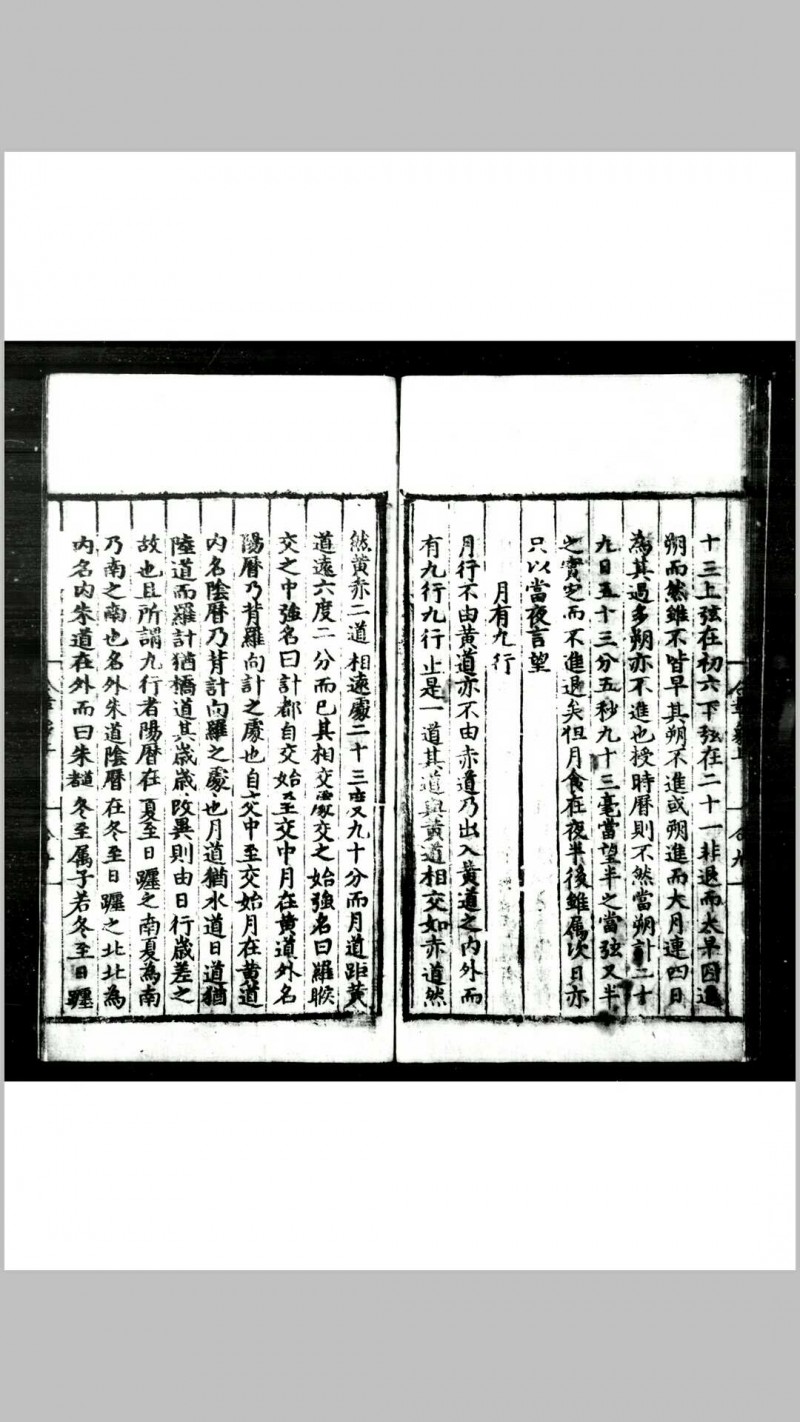 十三上弦在初六下弦在二十一非退而太早因進
朔而然雖不皆早其朔不進或朔進而大月連四日
為其過多朔亦不進也授時曆則不然當朔計二十
九日五十三分五秒九十三毫當望半之當弦又半
之實定而不進退矣但月食在夜半後雖属次日亦
只以當夜言望
月有九行
月行不由黄道亦不由赤道乃出入黄道之内外而
有九行九行止是一道其道與黄道相交如赤道然
然黄赤二道相遠處二十三度九十分而月道距黄
道遠六度二分而已其相交處交之始強名曰羅睺
交之中強名曰計都自交始至交中月在黄道外名
陽曆乃背羅向計之處也自交中至交始月在黄道
内名陰曆乃背計向羅之處也月道猶水道日道猶
陸道而羅計猶橋道其歲歲改異則由日行歲差之
故也且所謂九行者陽曆在夏至日躔之南夏為南
乃南之南也名外朱道陰曆在冬至日躔之北北為
内名内朱道在外而曰朱 冬至属子若冬至日躔